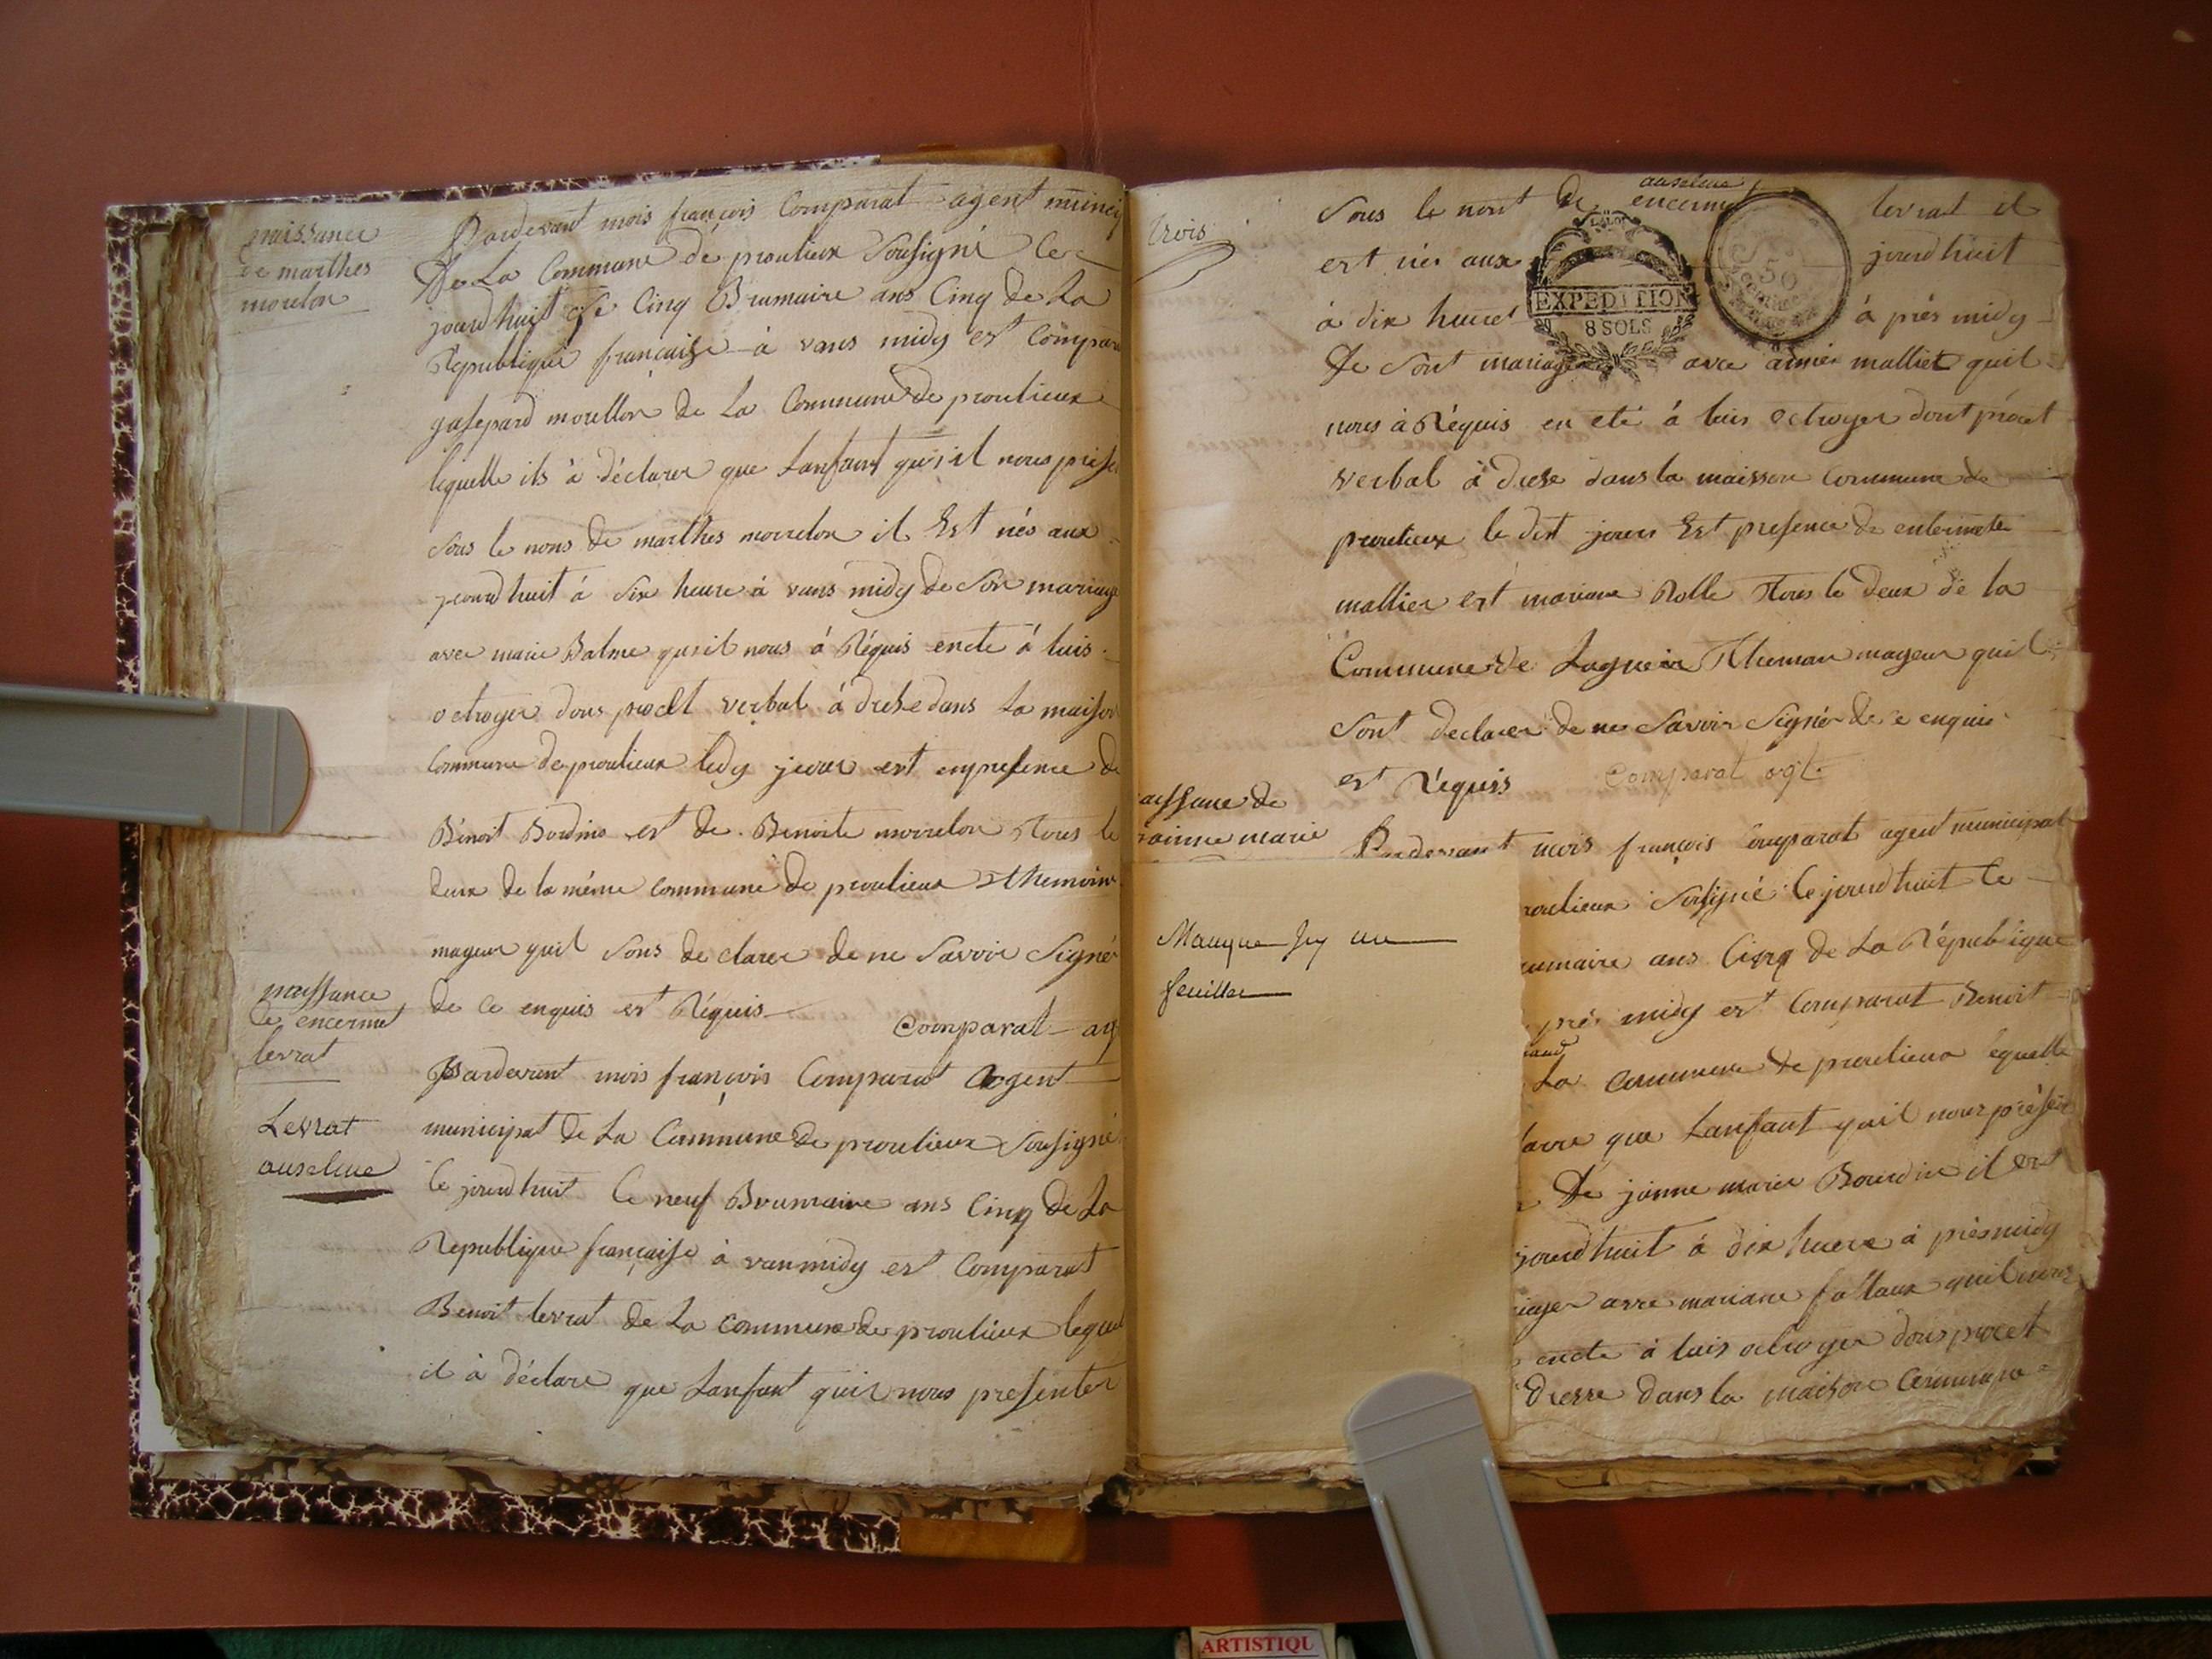 naissance
de marthes
morelon
Pardevant mois françois Comparat agent munici
De La Commune de proulieux Sousigné Ce
jourdhuit le Cinq Brumaire ans Cinq de La
Republique françaisse à vans midy est Compara
gasepard morellon de La Commune de proulieux
lequelle ils à déclarer que Lanfant quis il nous prese
Sous le nons de marthes morrelon il Est nés aux
jourdhuit à Six heure à vans midy de Son mariage
avec marie Balme qusil nous à Réquis en ete à luis
octroyer dous procet verbal à drese dans La maison
Commune de proulieux ledy jeour est enpresence de
Bénoit Bourdins est de Benoite morrelon Tous le
deux de la méme commune de proulieux Thémoins
mageur quil Sons de clarer de ne Savoir Signér
de ce enquis est Réquis
Comparat ag
naissance
de encermet
levrat
Levrat
anselme
Pardevent mois françois Comparat Agent
municipal de La Commune de proulieux Sousigné
Ce jourdhuit le neuf Brumaire ans Cinq de La
Republique françaisse à vanmidy est Comparat
Benoit levrat de La commune de proulieux lequel
il à déclare que Lanfant quil nous presenter
trois
Sous le nont de anselme encerme levrat il
est nés aux jourdhuit
EXPEDITION
8 SOLS
50
à dix heures à près midy
de Sont mariage avec aimée malliet quil
nous à Réquis en eté à luis octroyer dont procet
verbal à drese dans la maisson Commune de
proulieux le dit jours Est presence de
mallier est mariane Rolle Tous le deux de la
Commune de Lagneir Thémoin mageur quil
Sont declarer de ne Savoir Signér de ce enquis
est Réquis Comparat agt.
aissance de
oinne marie
Pardevant mois françois Comparat agent municipal
roulieux Sousigné Ce jourdhuit le
umaire ans Cinq de La République
prés midy est Comparat Benoit
La Commune de proulieux equelle
larre que Lanfant quil nous présen
De jeanne marie Bourdin il est
jourdhuit à dix heure à prèsmidy
iager avec mariane fallaux quil nous
en ete à luis octroyer dous procet
dresse dans la maison Commune
Manque Icy une
feuille
ARTISTIQU